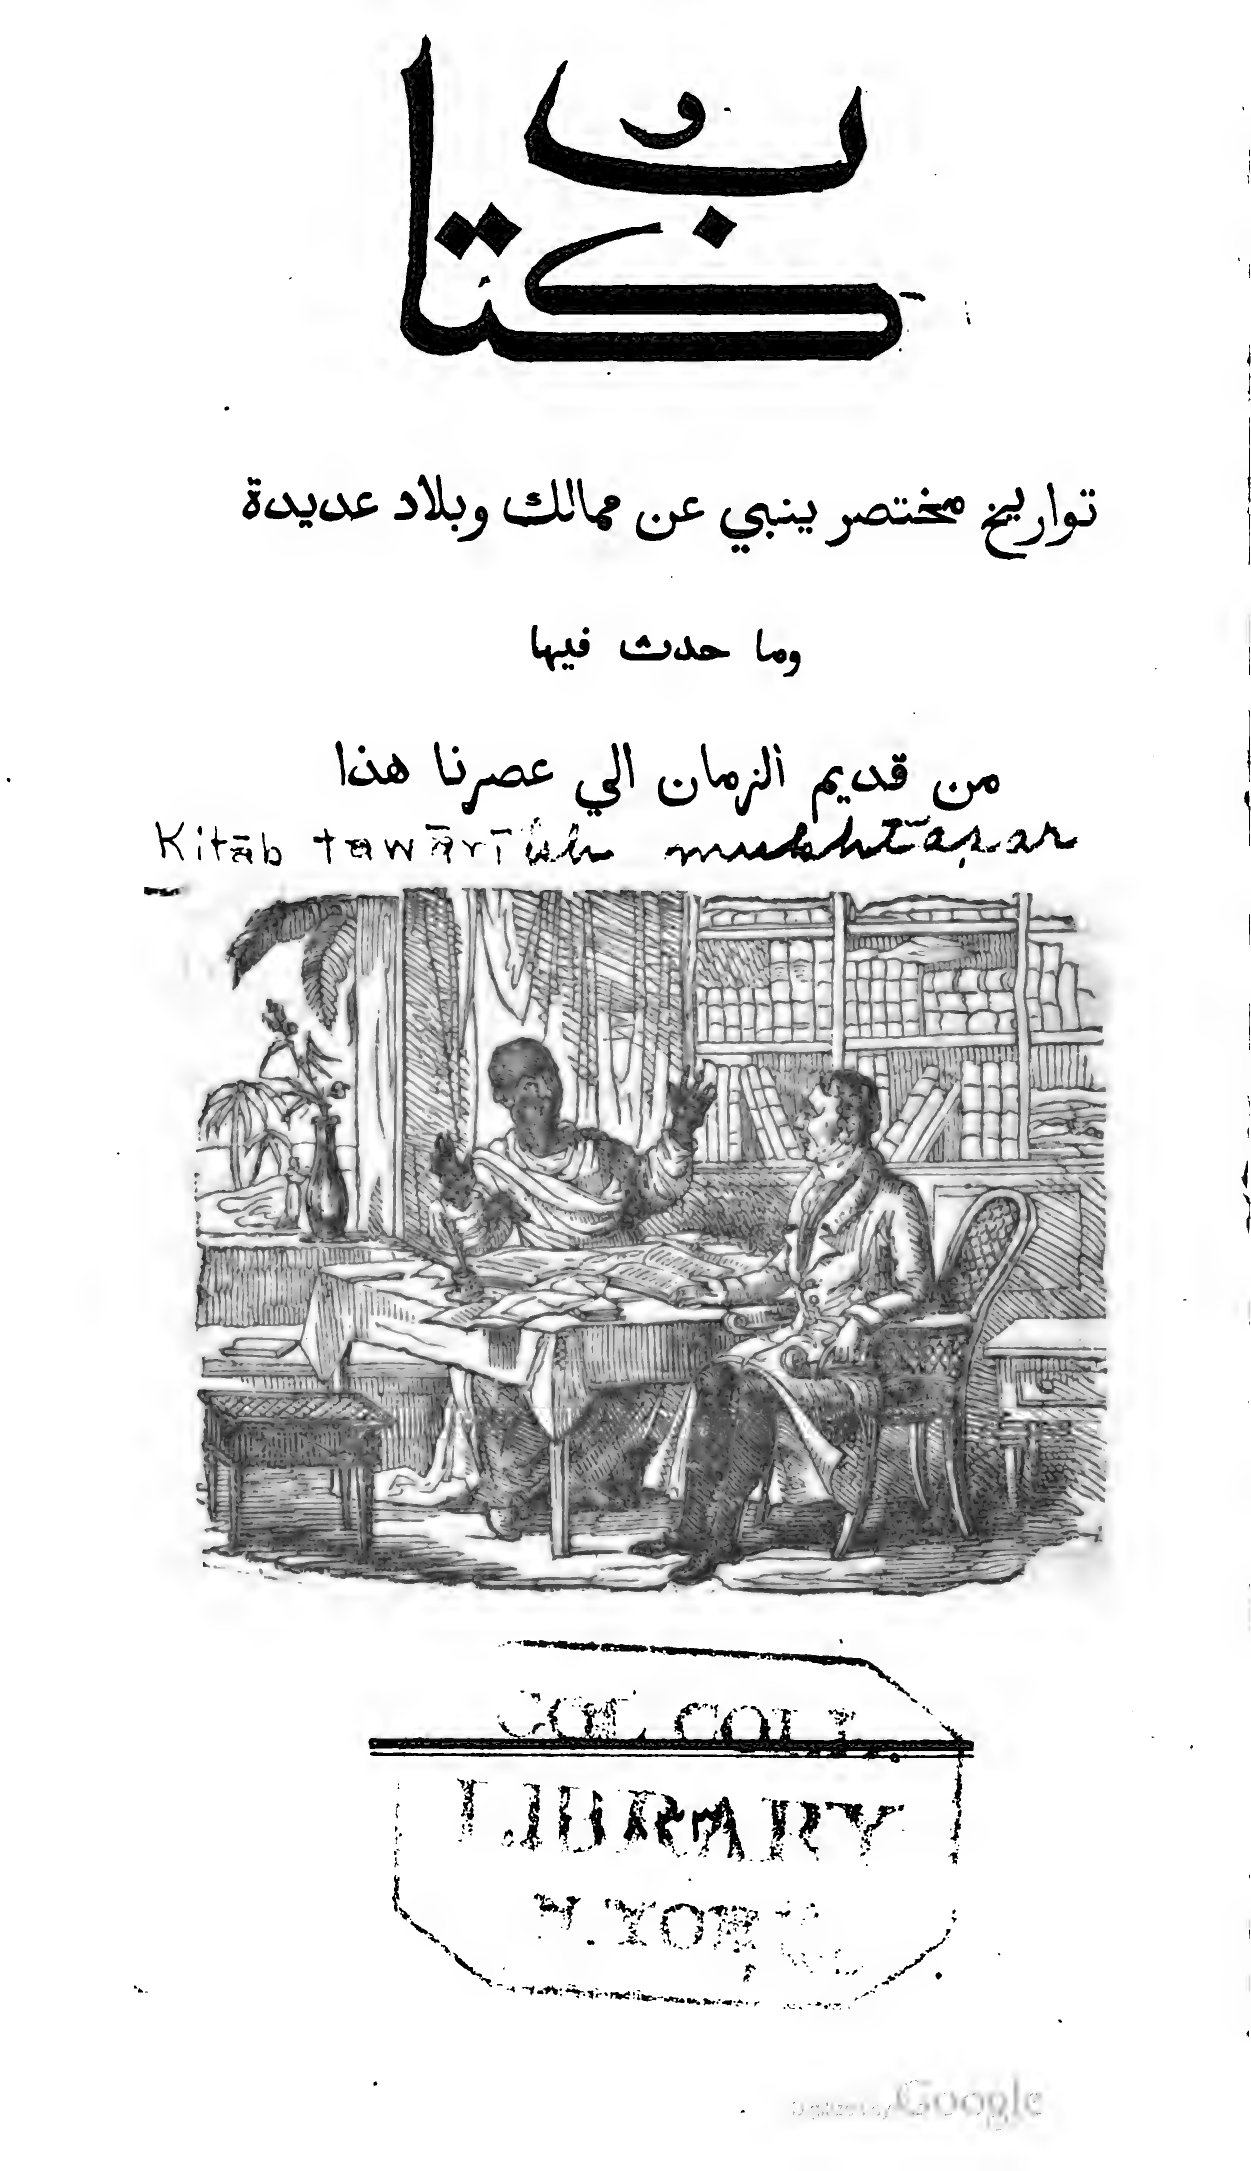 كتاب
تواريخ مختصر ينبي عن ممالك وبلاد عديدة
وما حدث فيها
من قديم الزمان الي عصرنا هذا
Kitāb tawārīkh mukhtaṣar
COL. COLL.
LIBRARY
N.YORK.
Digitized by Google